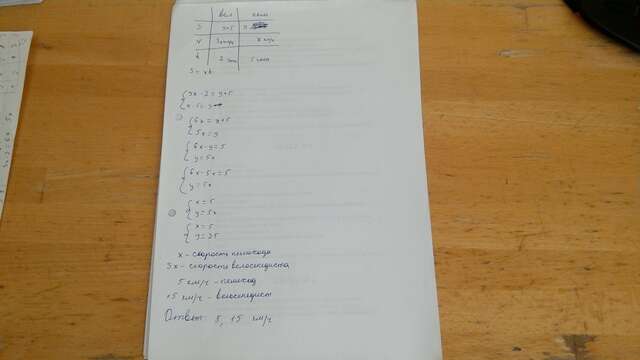 вел пеш.
S y+5 y
V 3x км/ч x км/ч
t 2 часа 5 часов
S = vt
{3x·2 = y+5
{x·5 = y
{6x = y+5
{5x = y
{6x-y = 5
{y = 5x
{6x-5x = 5
{y = 5x
{x = 5
{y = 5x
{x = 5
{y = 25
x - скорость пешехода
3x - скорость велосипедиста
5 км/ч - пешеход
15 км/ч - велосипедист
Ответ: 5, 15 км/ч